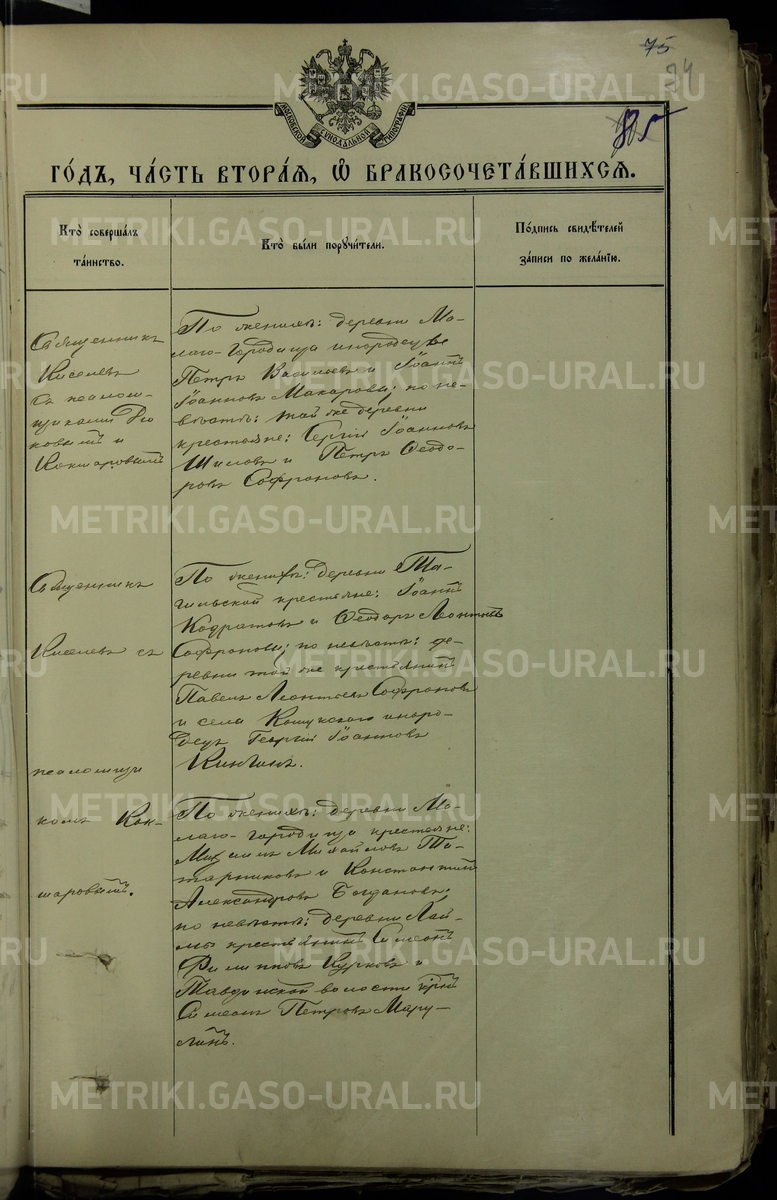 75
94
85
МОСКОВСКОЙ СѴНОДАЛЬНОЙ ТИПОГРАФІИ
ГО́ДЪ, ЧА́СТЬ ВТОРА́Я, Ѿ БРАКОСОЧЕТА́ВШИХСЯ.
Кто̀ соверша́лъ
та́инство.
Кто̀ бы́ли поручи́тели.
По́дпись свидѣ́телей
за́писи по жела́нїю.
Священникъ
Киселевъ
съ псаломщиками
ковымъ и
Кокшаровымъ
По женихѣ: деревни Ма-
лаго-Городища инородцы
Петръ Васильевъ и Іоаннъ
Іоанновъ Макаровы; по не-
вѣстѣ: той же деревни
крестьяне: Сергій Іоанновъ
Шиловъ и Петръ Ѳеодо-
ровъ Софроновъ.
Священникъ
Киселевъ съ
псаломщи
комъ Кок-
шаровымъ.
По женихѣ: деревни Та-
гильской крестьяне: Іоаннъ
Кодратовъ и Ѳеодоръ Леонтьевъ
Софроновы; по невѣстѣ: де-
ревни той же крестьянинъ
Павелъ Леонтьевъ Софроновъ
и села Кошукскаго иноро-
децъ Георгій Іоанновъ
По женихѣ: деревни Ма-
лаго-городища крестьяне:
Михаилъ Михайловъ Та-
тарниковъ и Константинъ
Александровъ Богдановъ;
по невѣстѣ: деревни Лай-
мы крестьянинъ Симеонъ
Филипповъ Курковъ и
Тавдинской волости кр-нъ
Симеонъ Петровъ Мару-
линъ.
METRIKI.GASO-URAL.RU